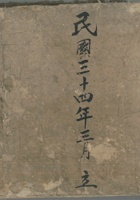 民國三十四年三月 立